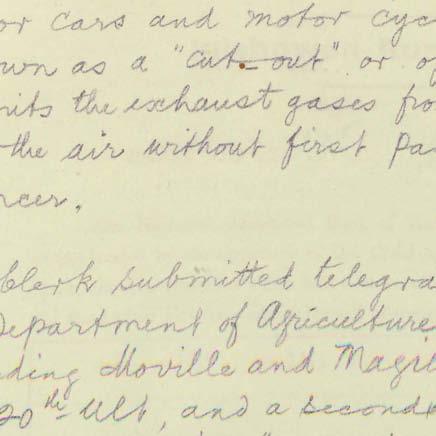 or cars and motor cyc
own as a "cut-out" or o
mits the exhaust gases fro
the air without first pa
ncer.
Clerk submitted telegra
Department of Agriculture
ding Moville and Magil
20th Ult, and a second